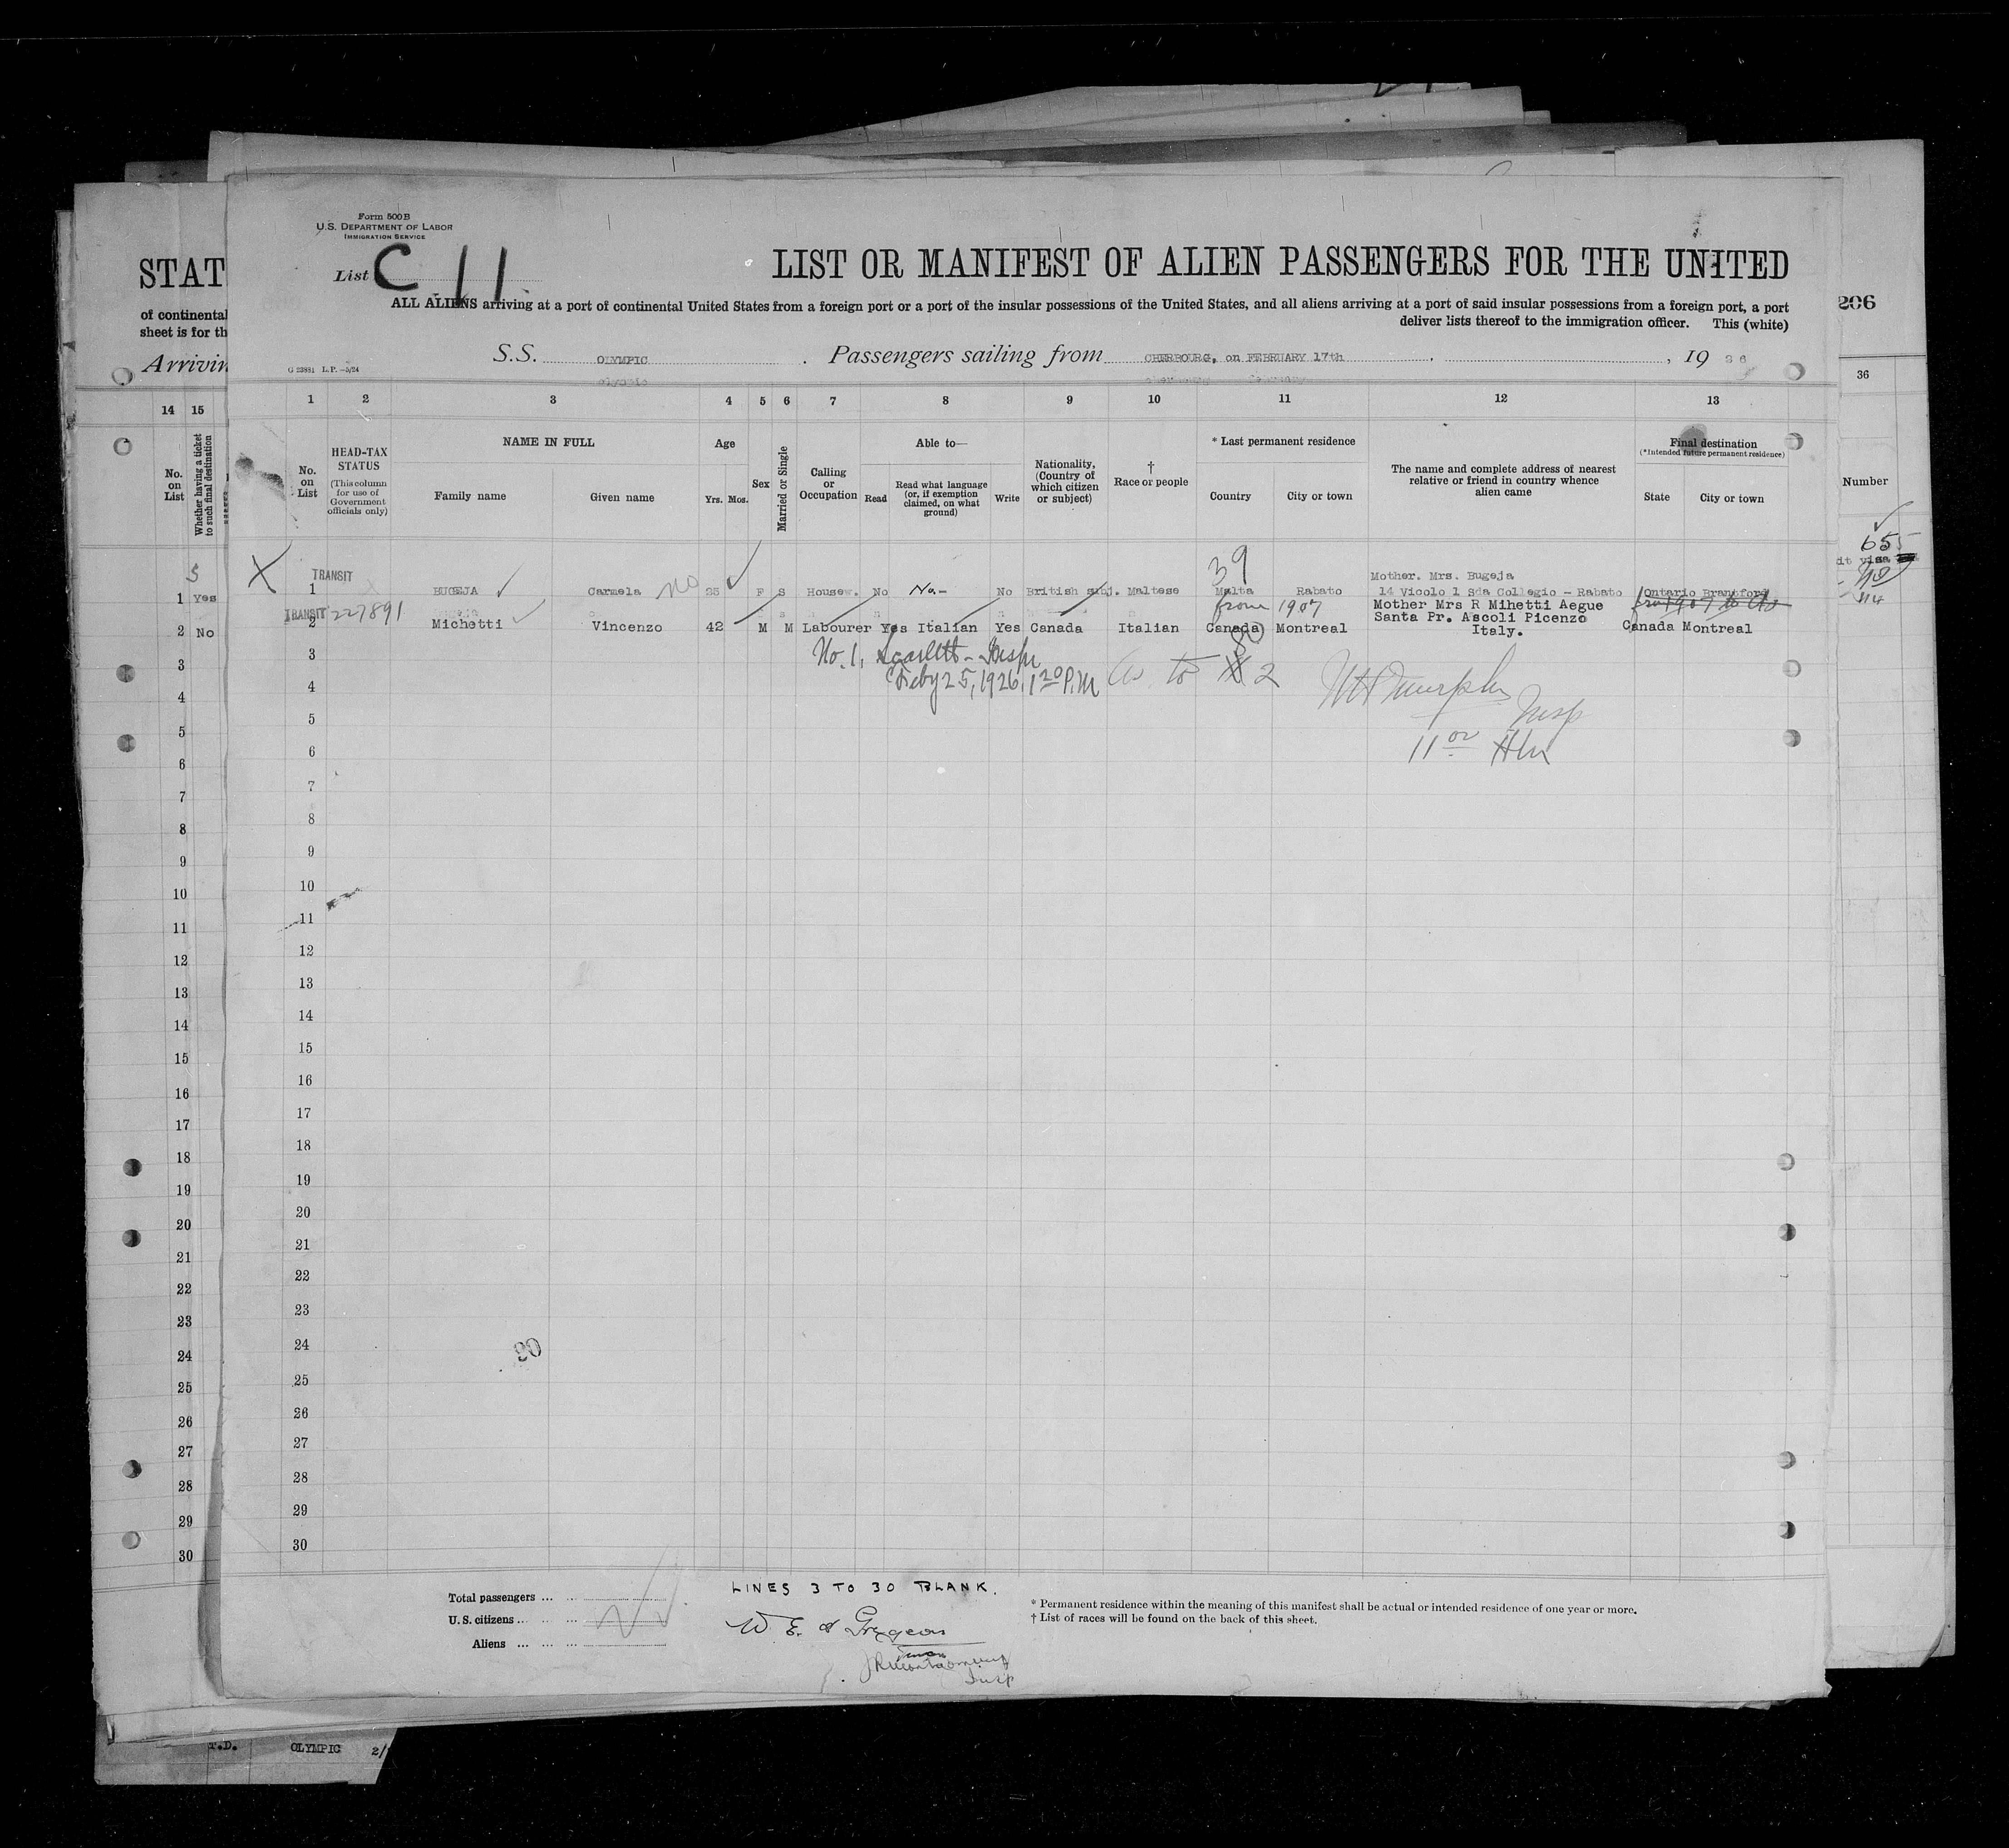 Form 500B
U.S. DEPARTMENT OF LABOR
IMMIGRATION SERVICE
List C 11
LIST OR MANIFEST OF ALIEN PASSENGERS FOR THE UNITED
ALL ALIENS arriving at a port of continental United States from a foreign port or a port of the insular possessions of the United States, and all aliens arriving at a port of said insular possessions from a foreign port, a port
deliver lists thereof to the immigration officer. This (white)
S.S. OLYMPIC . Passengers sailing from CHERBOURG, on FEBRUARY 17th , , 19 26
G 23881 L.P.—5/24
STAT
of continental
sheet is for th
Arrivin
206
1 2 3 4 5 6 7 8 9 10 11 12 13
14 15
36
No. on List
Whether having a ticket to such final destination
No. on List
HEAD-TAX STATUS
(This column for use of Government officials only)
NAME IN FULL
Family name
Given name
Age
Yrs. Mos.
Sex
Married or Single
Calling or Occupation
Able to—
Read
Read what language (or, if exemption claimed, on what ground)
Write
Nationality, (Country of which citizen or subject)
† Race or people
* Last permanent residence
Country
City or town
The name and complete address of nearest relative or friend in country whence alien came
Final destination
(*Intended future permanent residence)
State
City or town
Number
5
X
39
655
dit visa
TRANSIT
Mother. Mrs. Bugeja
1 Yes
1 BUGEJA Carmela no 25 F S Housew. No No.- No British subj. Maltese Malta Rabato 14 Vicolo 1 Sda Collegio - Rabato Ontario Brantford
TRANSIT 227891
from 1907
Mother Mrs R Mihetti Aegue
Santa Pr. Ascoli Picenzo
Italy.
2 No
2 Michetti Vincenzo 42 M M Labourer Yes Italian Yes Canada Italian Canada Montreal Canada Montreal
No. 1, Scarlett - Inspr
Feby 25, 1926, 1 20 P.M
as to # 2
WH Murphy
Insp
11 00 AM
3
4
5
6
7
8
9
10
11
12
13
14
15
16
17
18
19
20
21
22
23
24
25
26
27
28
29
30
3
4
5
6
7
8
9
10
11
12
13
14
15
16
17
18
19
20
21
22
23
24
25
26
27
28
29
30
Total passengers ... ...
U.S. citizens ... ... ...
Aliens ... ... ...
LINES 3 TO 30 BLANK.
* Permanent residence within the meaning of this manifest shall be actual or intended residence of one year or more.
† List of races will be found on the back of this sheet.
Insp
T.D. OLYMPIC 2/